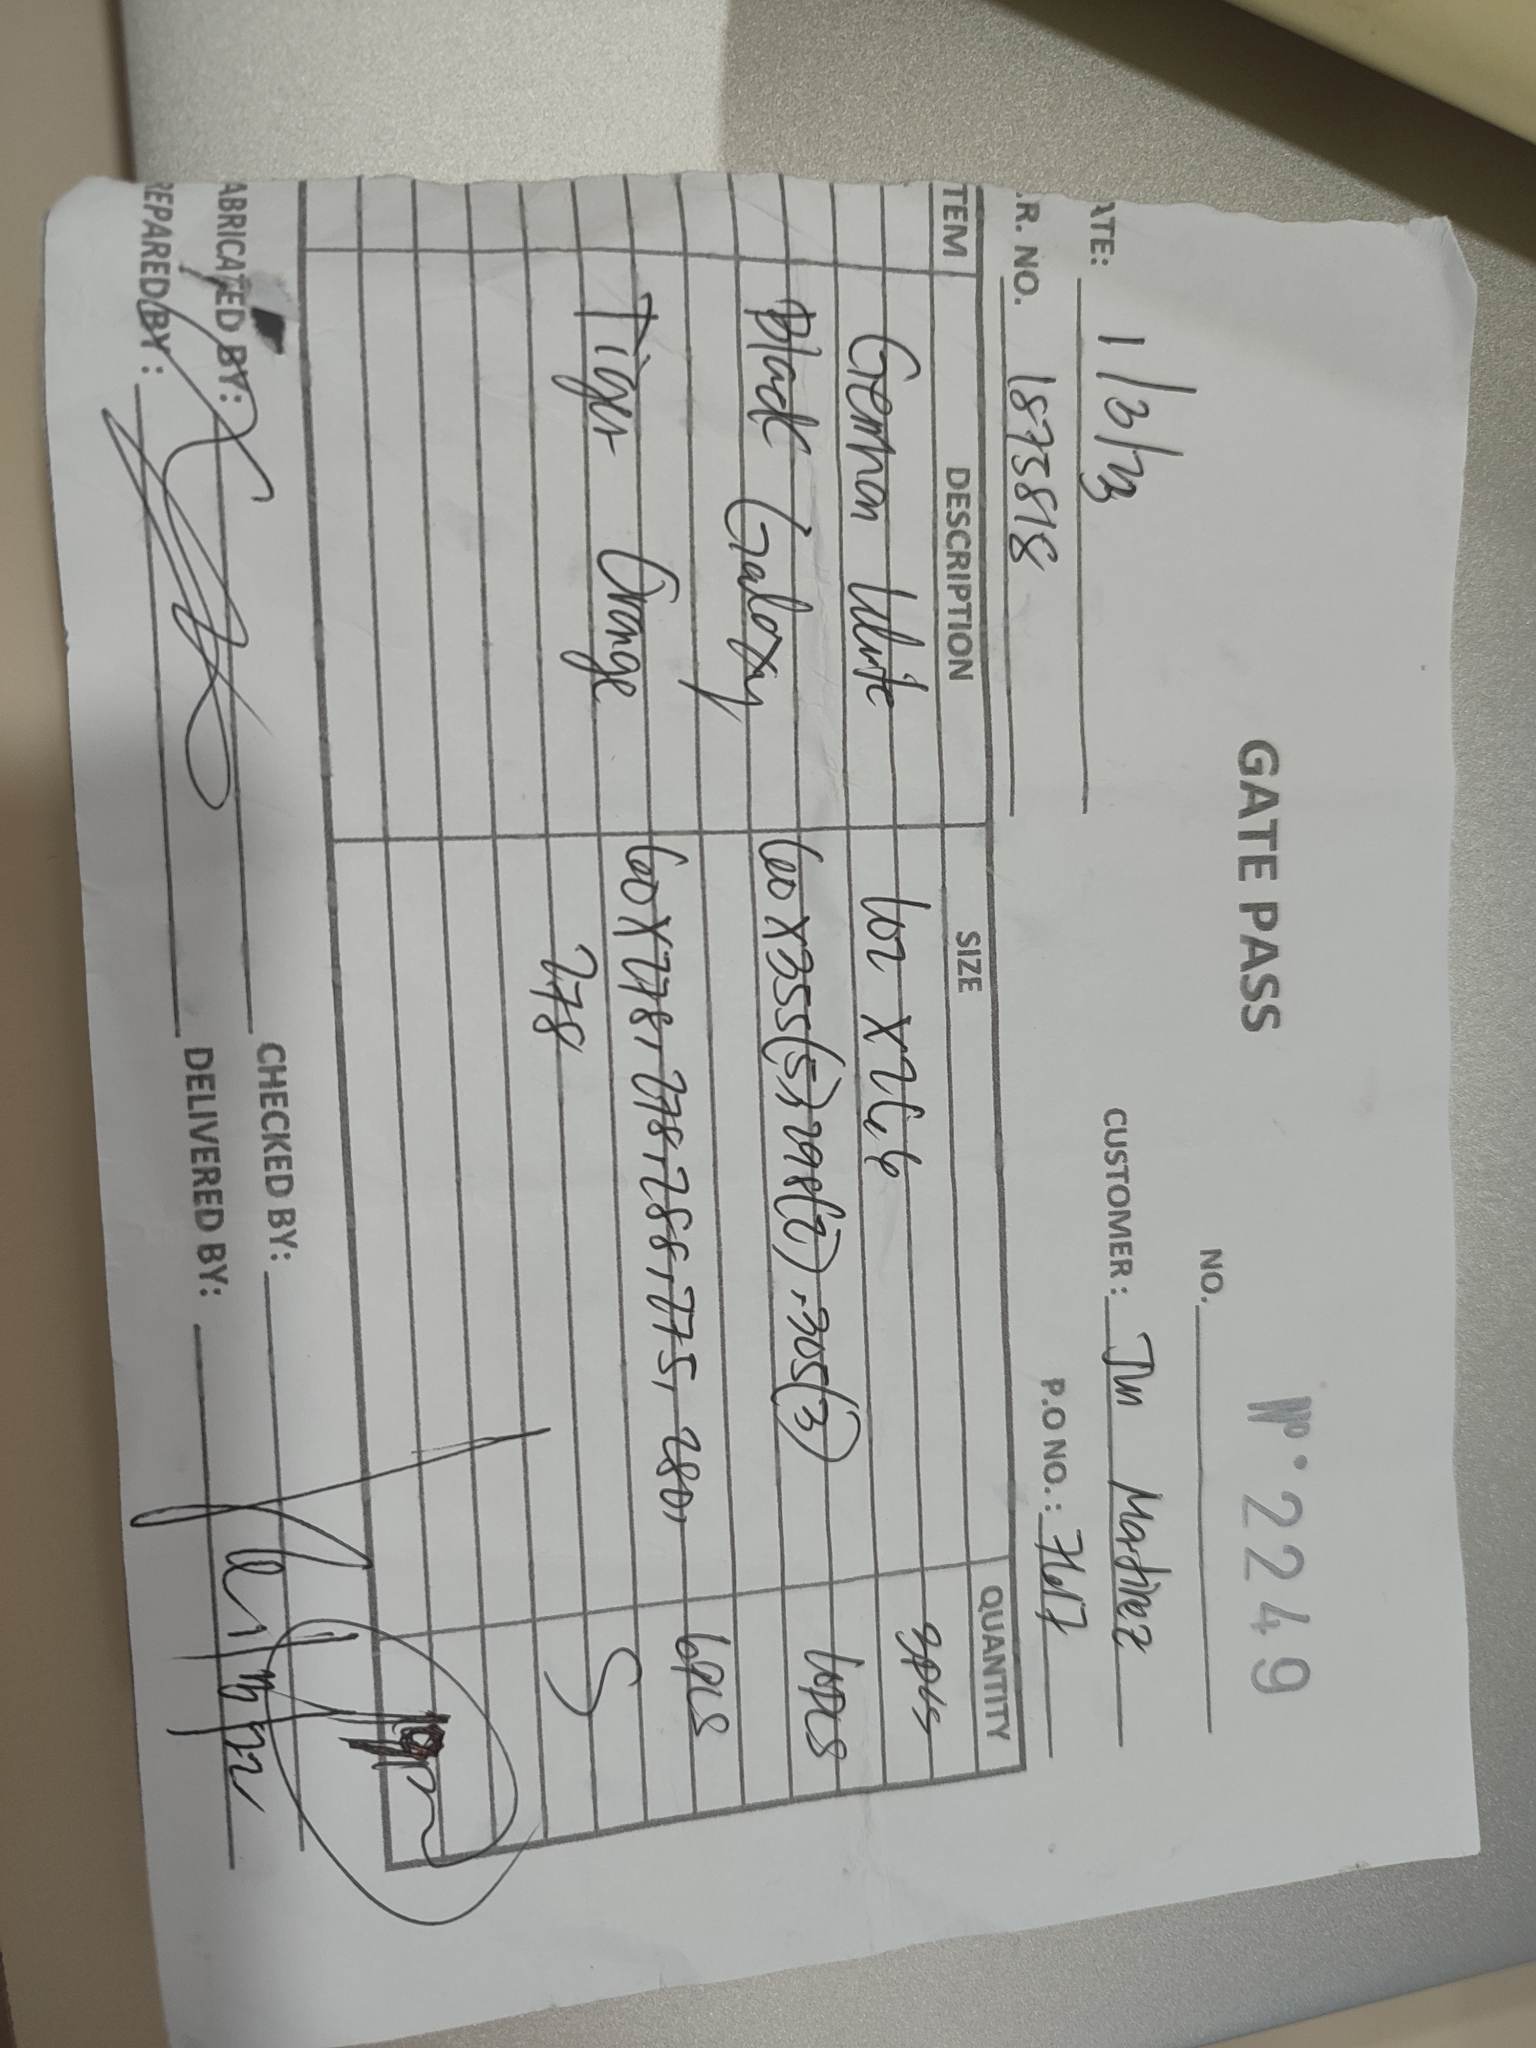 GATE PASS
Nº. 2249
NO.
ATE: 1/3/23
CUSTOMER: Jun Martinez
.R. NO. 1873818
P.O NO.: 7617
TEM DESCRIPTION SIZE QUANTITY
German White 602 x 266 3pcs
Black Galaxy 60 x 355(5), 298(2), 305(3) 10pcs
Tiger Orange 60 x 278, 278, 288, 275, 280, 6pcs
278
ABRICATED BY:
CHECKED BY:
REPARED BY:
DELIVERED BY: